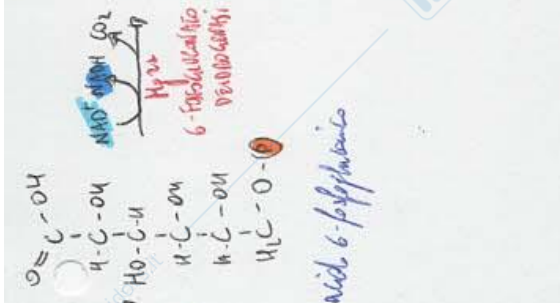 O=C-OH
H-C-OH
HO-C-H
H-C-OH
H-C-OH
H₂C-O-P
NAD⁺ NADH CO₂
Mg²⁺
6-FOSFOGLUCONATO
DEIDROGENASI
acido 6-fosfogluconico